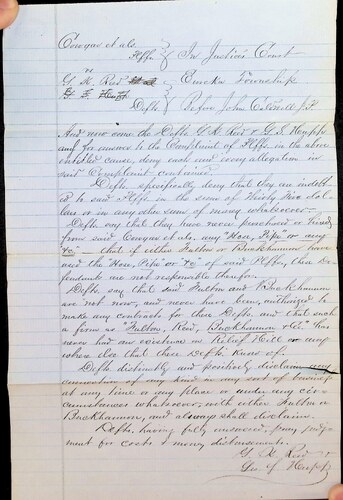 Cowgar et als
Plffs } In Justice's Court
vs
G. H. Reid } Eureka Township
G. S. Hupp
Defts } Before John Colwell J.P.
And now come the Defts G. H. Reid & G. S. Hupp
and for answer to the Complaint of Plffs. in the above
entitled cause, deny each and every allegation in
said Complaint contained.
Defts. specifically deny that they are indebt
ed to said Plffs in the sum of Thirty Five dol
lars or in any other sum of money whatsoever—
Defts. say that they have never purchased or hired
from said Cowgar et als. any "Hose, Pipe" or any
"&c" — that if either Fulton or Buckhannon have
used the "Hose, Pipe" or "&c" of said Plffs, these De
fendants are not responsible therefor.
Defts. say that said Fulton and Buckhannon
are not now, and never have been, authorized to
make any contracts for these Defts. and that such
a firm as "Fulton, Reid, Buckhannon & Co." has
never had an existence in Relief Hill or any
where else that these Defts. know of.
Defts. distinctly and positively disclaim any
connection of any kind or any sort of business
at any time or any place or under any cir
cumstances whatsoever, with either Fulton or
Buckhannon, and always shall disclaim.
Defts. having fully answered, pray judg
ment for costs & money disbursements.
G. H. Reid &
Geo. S. Hupp